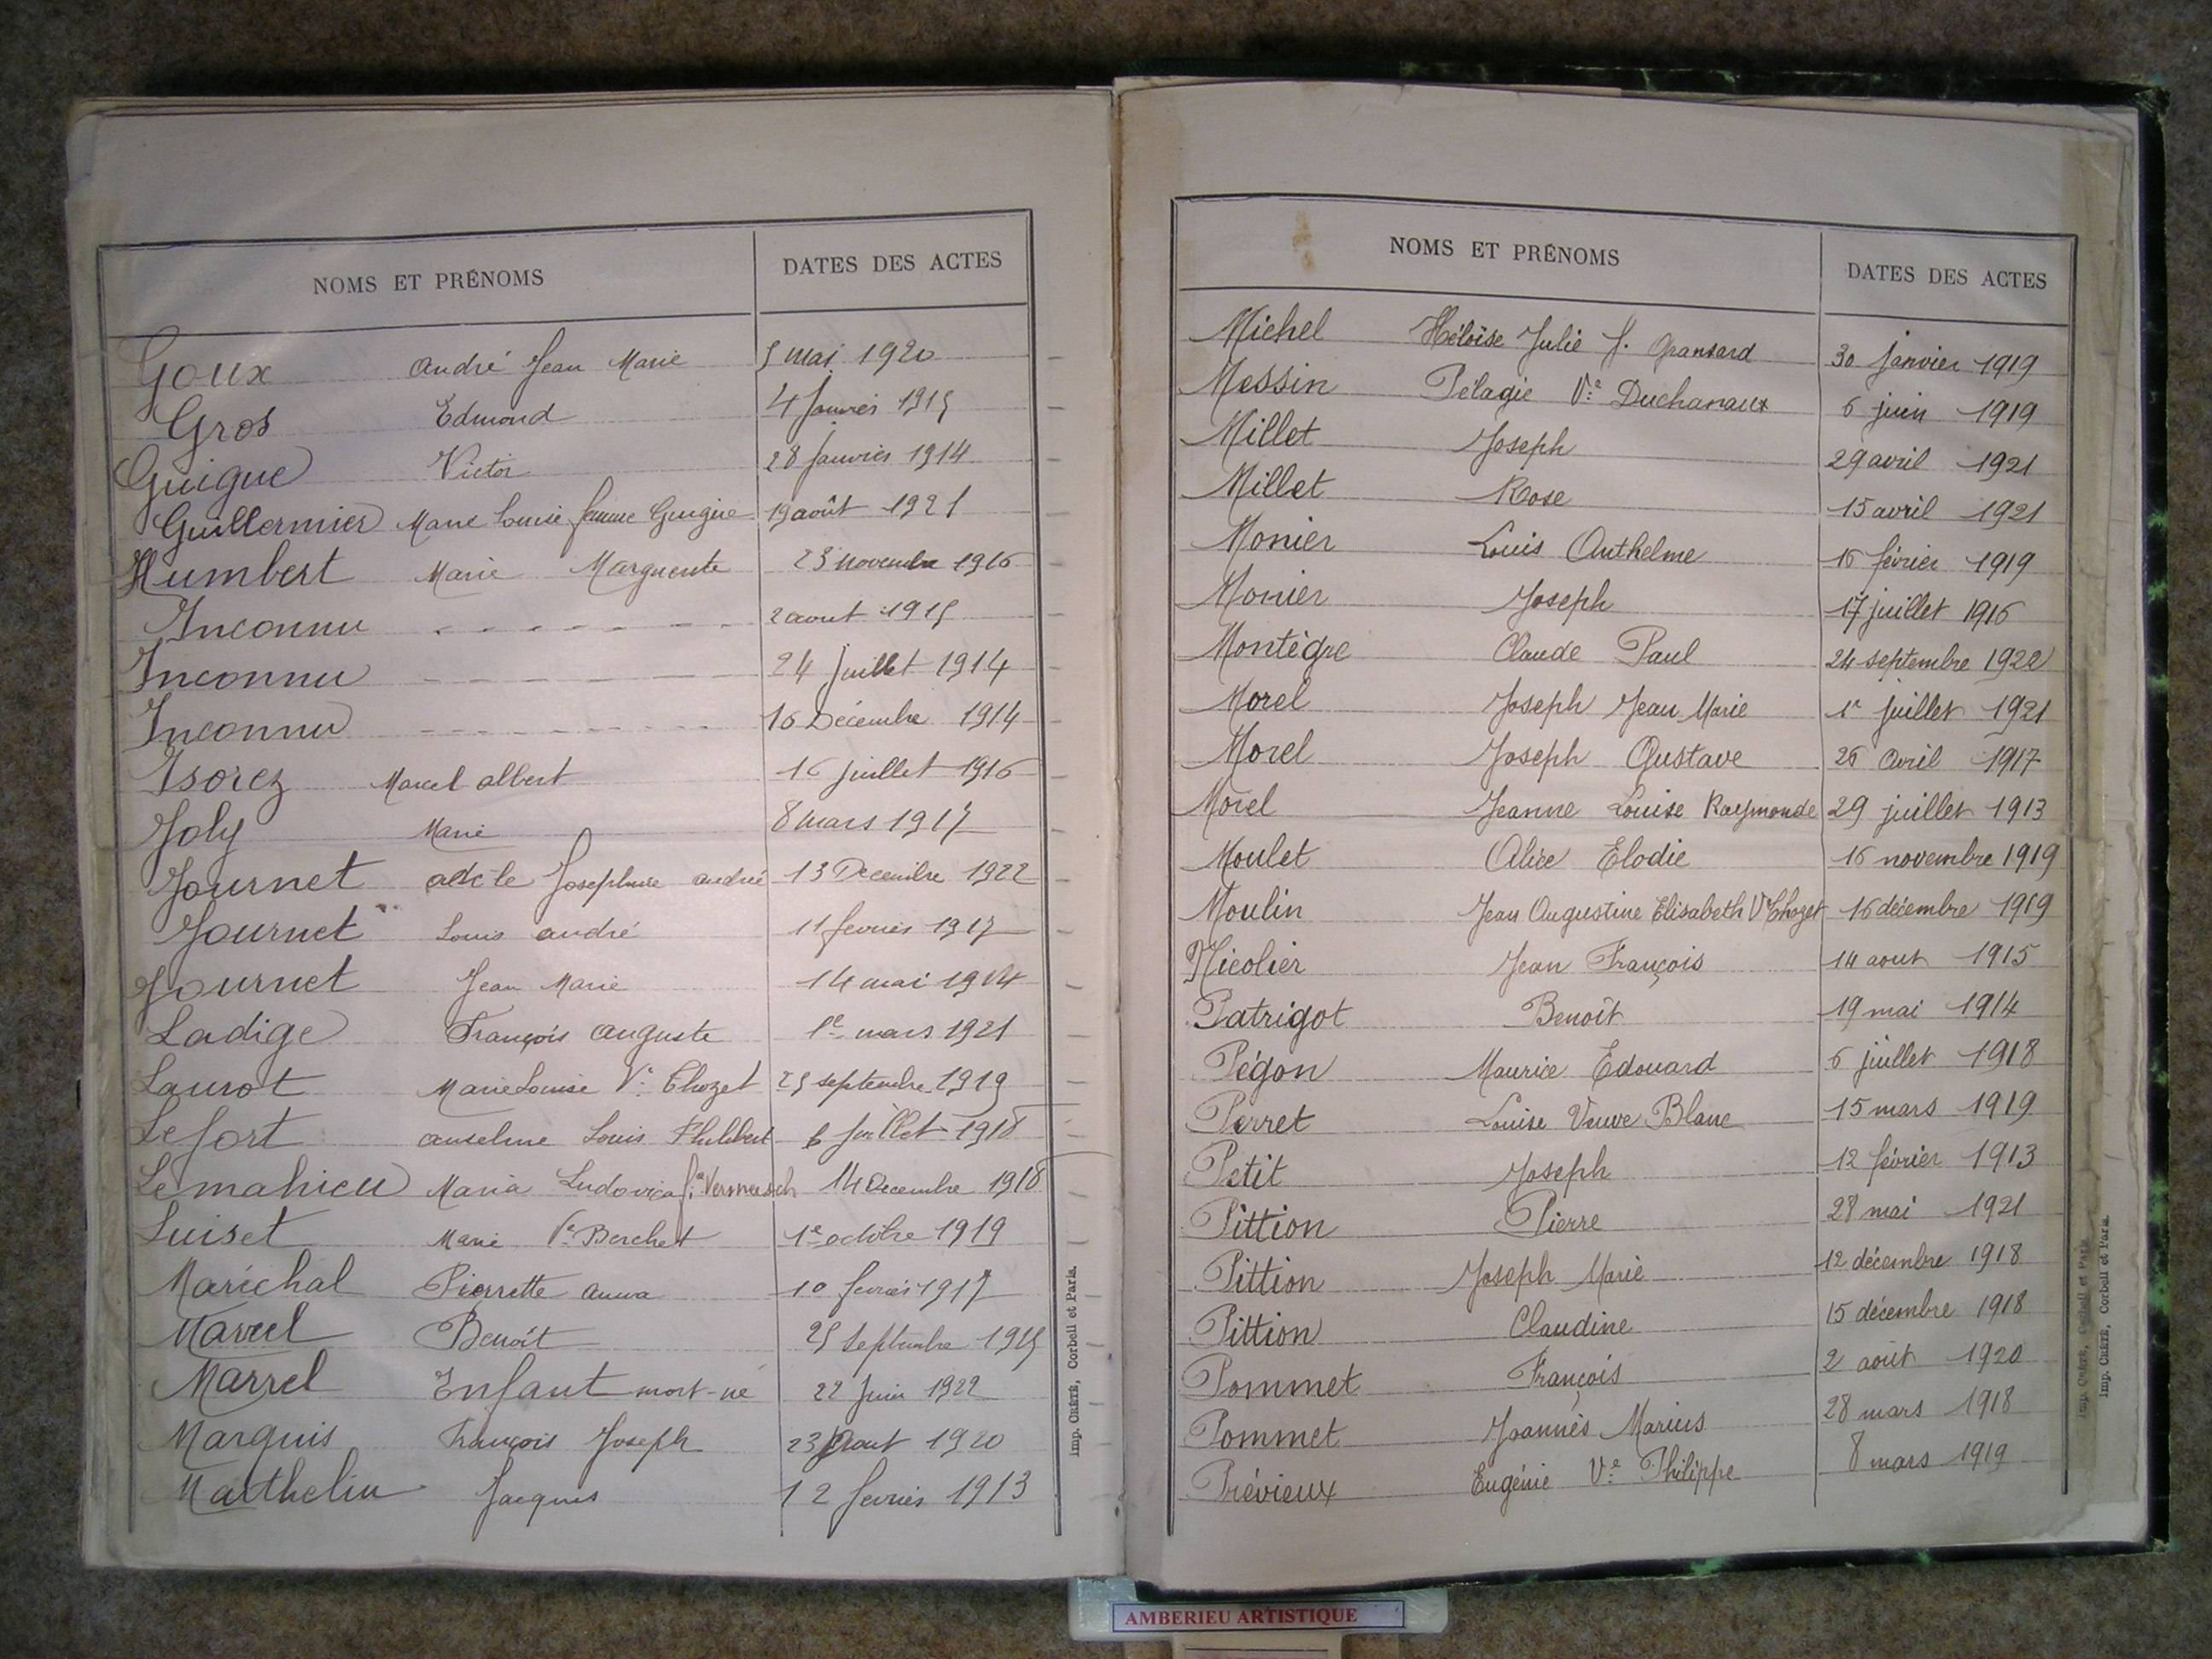 NOMS ET PRÉNOMS DATES DES ACTES
Goux André Jean Marie 5 mai 1920
Gros Edmond 4 Janvier 1915
Guigue Victor 28 Janvier 1914
Guillermier Marie Louise femme Guigue 19 août 1921
Humbert Marie Marguerite 23 novembre 1916
Inconnu - - - - - - - 2 aout 1915
Inconnu - - - - - - - 24 Juillet 1914
Inconnu - - - - - - - 16 Décembre 1914
Isorez Marcel albert 16 juillet 1916
Joly Marie 8 mars 1917
Journet Josephine andré 13 Decembre 1922
Journet Louis andré 11 fevrier 1917
Journet Jean Marie 14 mai 1914
Ladige François auguste 1e mars 1921
Laurot Marie Louise Ve Chozet 25 septembre 1919
Lefort anselme Louis Philibert 6 Juillet 1918
Lemahieu Maria Ludovica fe Vermeesch 14 Decembre 1918
Luiset Marie Ve Berchet 1e octobre 1919
Maréchal Pierrette anna 10 fevrier 1917
Marcel Benoît 25 Septembre 1915
Marrel Enfant mort-né 22 Juin 1922
Marquis François Joseph 23 Aout 1920
Marthelin Jacques 12 fevrier 1913
Imp. CRÉTÉ, Corbeil et Paris.
NOMS ET PRÉNOMS DATES DES ACTES
Michel Héloïse Julie f. Gransard 30 Janvier 1919
Messin Pélagie Ve Duchanaux 6 juin 1919
Millet Joseph 29 avril 1921
Millet Rose 15 avril 1921
Monier Louis Anthelme 16 février 1919
Monier Joseph 17 juillet 1916
Montègre Claude Paul 24 septembre 1922
Morel Joseph Jean Marie 1r juillet 1921
Morel Joseph Gustave 26 Avril 1917
Morel Jeanne Louise Raymonde 29 juillet 1913
Moulet Alice Elodie 16 novembre 1919
Moulin Jean Augustine Elisabeth Ve Chozet 16 décembre 1919
Nicolier Jean François 14 aout 1915
Patrigot Benoît 19 mai 1914
Pégon Maurice Edouard 6 juillet 1918
Perret Louise Veuve Blanc 15 mars 1919
Petit Joseph 12 février 1913
Pittion Pierre 28 mai 1921
Pittion Joseph Marie 12 décembre 1918
Pittion Claudine 15 décembre 1918
Pommet François 2 août 1920
Pommet Joannès Marius 28 mars 1918
Prévieux Eugénie Ve Philippe 8 mars 1919
Imp. CRÉTÉ, Corbeil et Paris.
Imp. CRÉTÉ, Corbeil et Paris.
AMBERIEU ARTISTIQUE